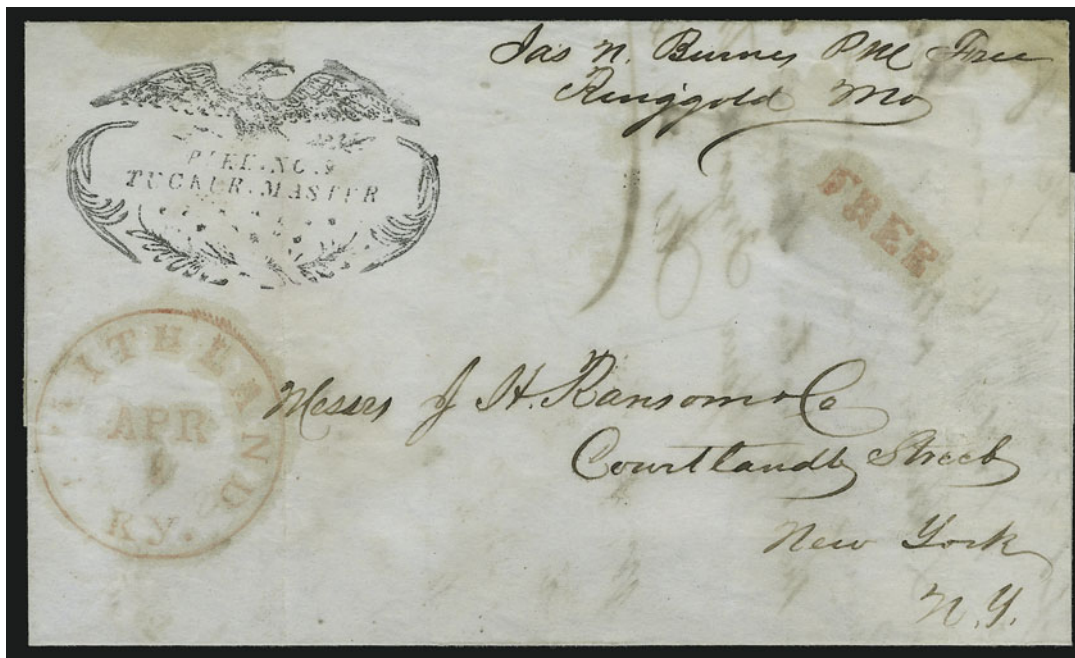 Jas N. Burnes PM Free
Ringgold Mo
PIKE.NO.9
TUCKER.MASTER
FREE
SMITHLAND
APR
KY.
Messrs J H. Ransom & Co
Courtlandt Street
New York
N.Y.